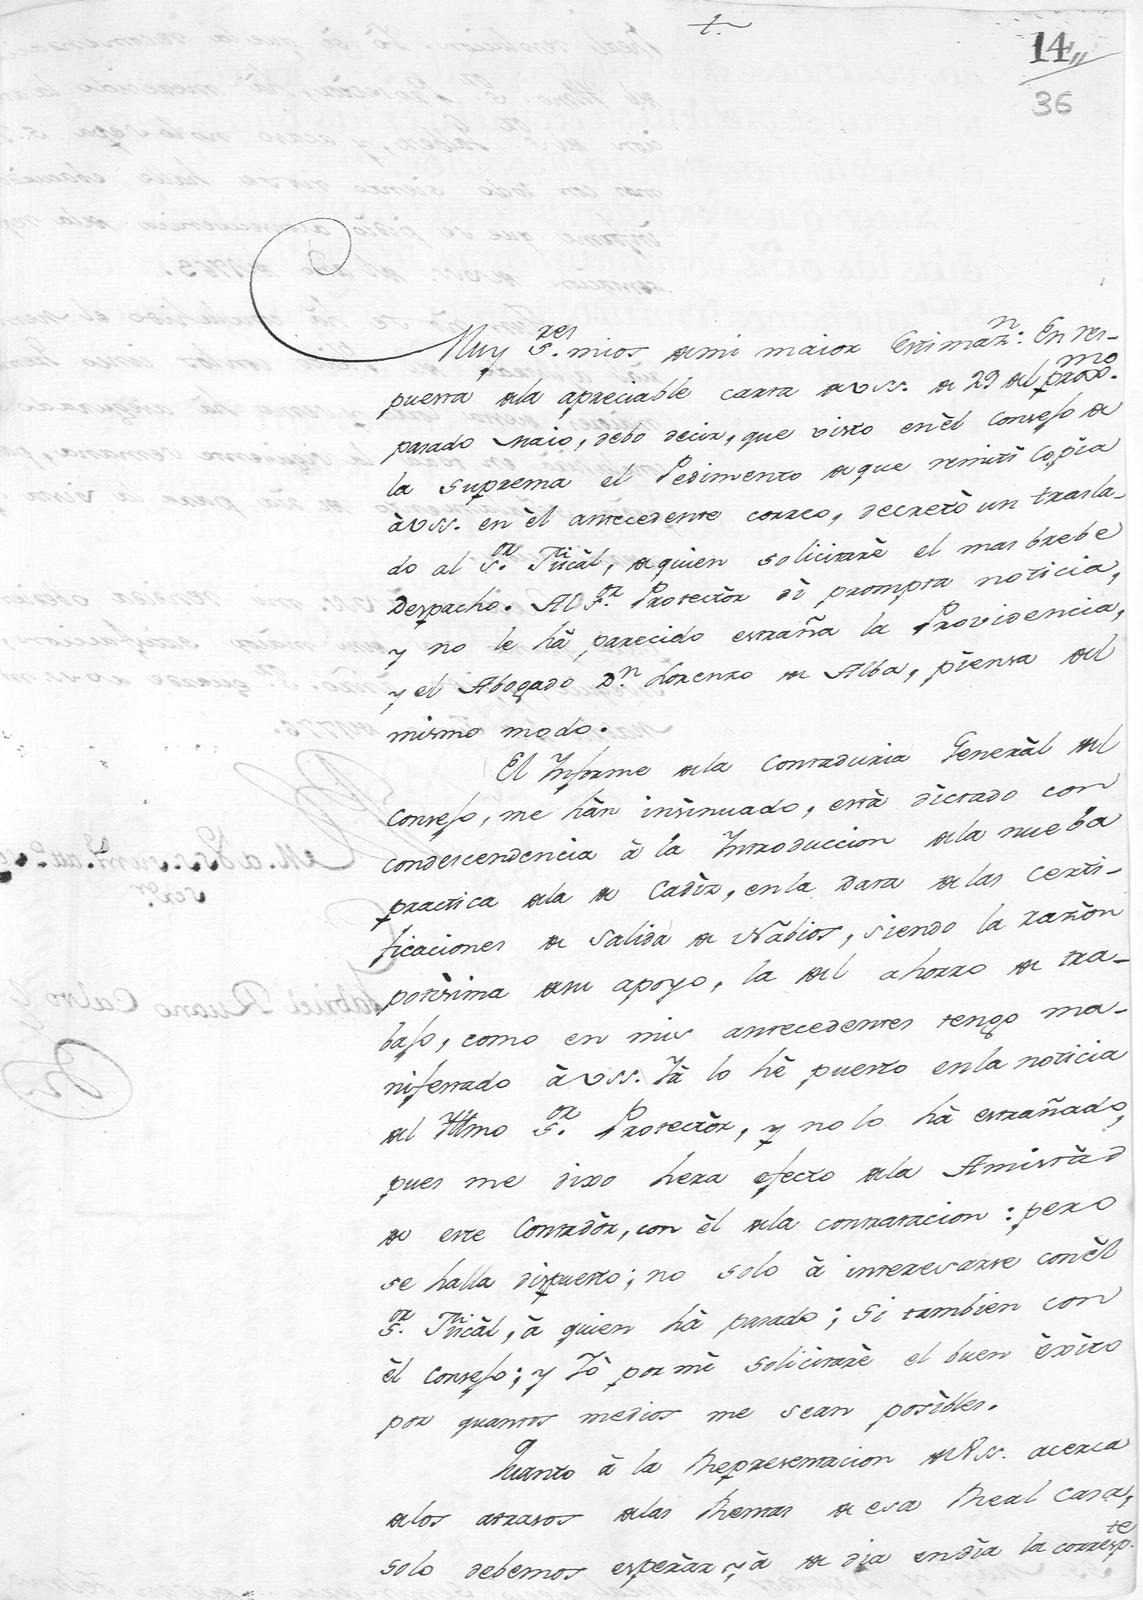 †
14,,
36
Muy S.res mios de mi maior Estimaz.n: En res-
puesta de la apreciable carta de VSS. de 29 del prox.mo
pasado Maio, debo decir, que visto en èl Consejo de
la Suprema el Pedimento de que remiti Copia
à VSS. en èl antecedente correo, decretò un trasla-
do al S.or Fiscàl, de quien solicitarè el mas brebe
Despacho. Al S.or Protectòr dì prompta noticia,
y no le hà parecido estraña la Providencia,
y el Abogado D.n Lorenzo de Alba, piensa del
mismo modo.
El Informe de la Contaduria Generàl del
Consejo, me hàn insinuado, està dictado con
condescendencia à la Introduccion de la nueba
practica de la de Cadiz, en la Data de las Certi-
ficaciones de Salida de Nàbios, siendo la razòn
potisima de su apoyo, la del ahorro de tra-
bajo, como en mis antecedentes tengo ma-
nifestado à VSS. Yà lo hè puesto en la noticia
del Yltmo S.or Protectòr, y no lo hà estrañado,
pues me dixo hera efecto de la Amistàd
de este Contadòr, con èl de la contratacion: pero
se halla dispuesto; no solo à interesarse con èl
S.or Fiscàl, à quien hà pasado; Si tambien con
èl Consejo; y Yò por mi solicitarè el buen èxito
por quantos medios me sean posibles.
Quanto à la Representacion de VSS. acerca
de los atrasos de las Rentas de esa Real Casa,
solo debemos esperàr yà de dia en dia la corresp.te